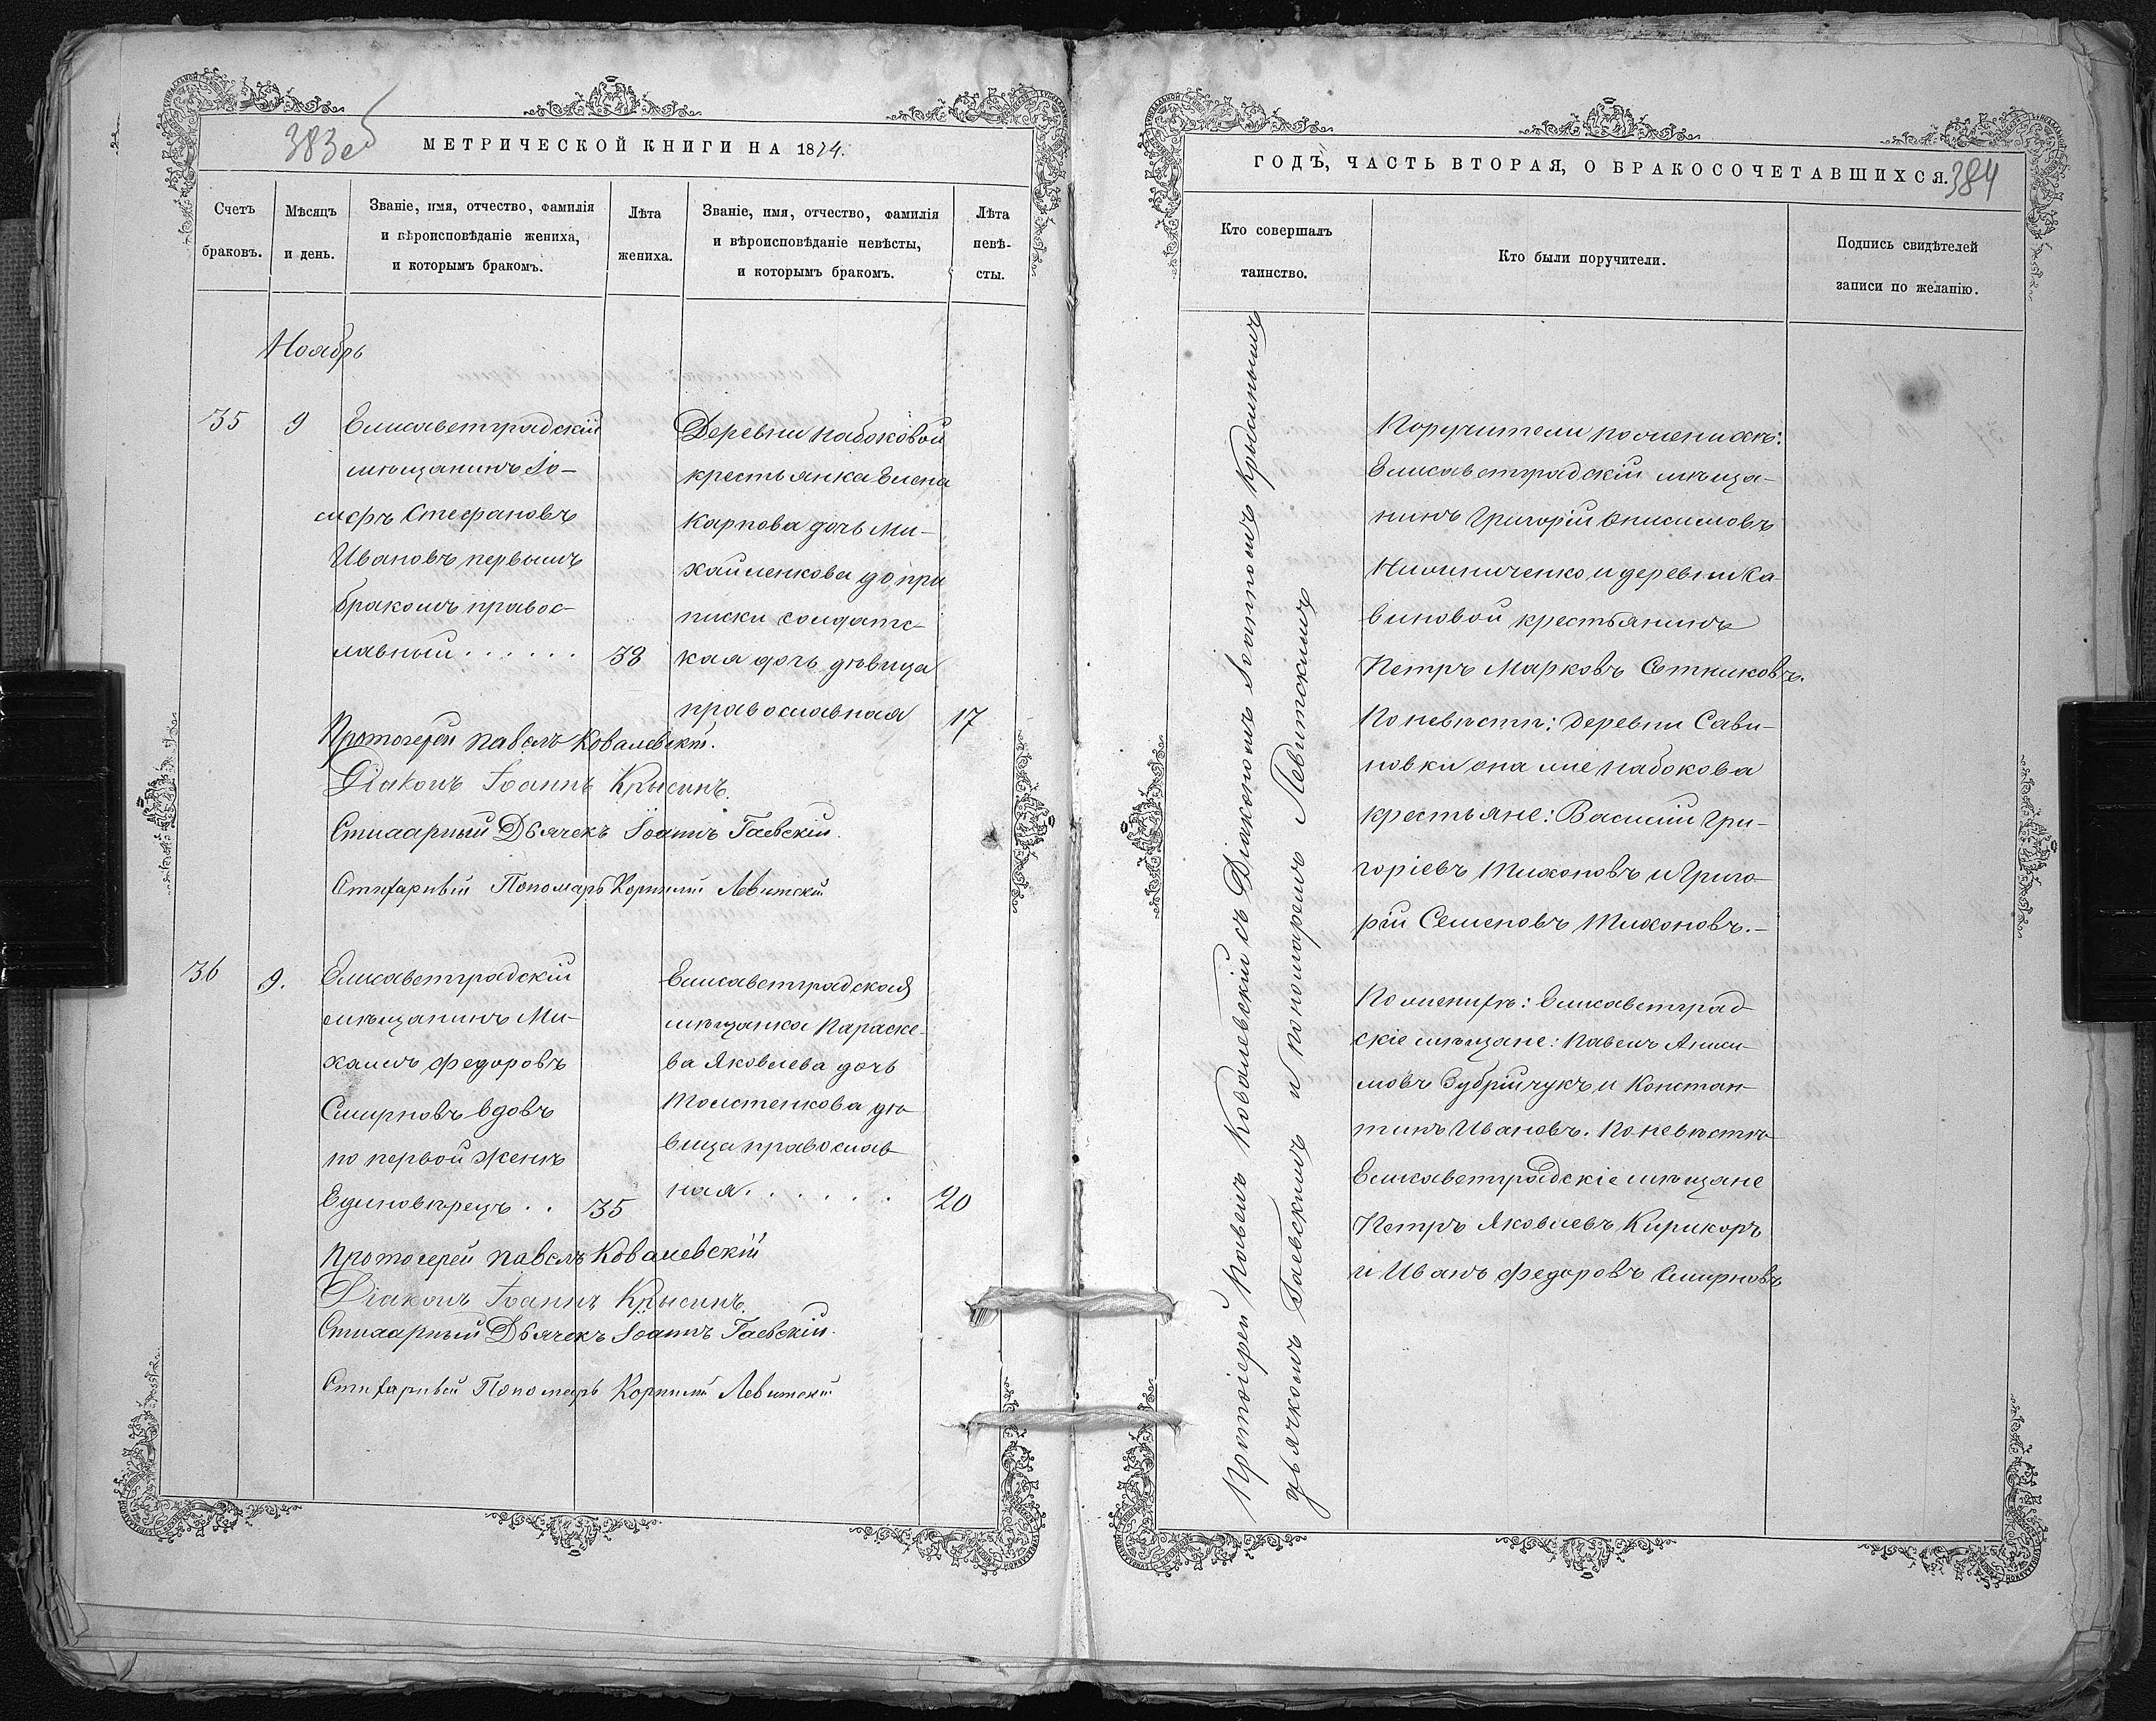 383об
МЕТРИЧЕСКОЙ КНИГИ НА 1874.
Счетъ браковъ.
Мѣсяцъ и день.
Званіе, имя, отчество, фамилія
и вѣроисповѣданіе жениха,
и которымъ бракомъ.
Лѣта жениха.
Званіе, имя, отчество, фамилія
и вѣроисповѣданіе невѣсты,
и которымъ бракомъ.
Лѣта невѣ-
сты.
Ноябрь
35
9
Елисаветградскій
мѣщанинъ Іо-
сифъ Стефановъ
Ивановъ первымъ
бракомъ правос-
лавный . . . . . .
38
Деревни Набоковой
крестьянка Елена
Карпова дочь Ми-
хайленкова до при
писки солдатс-
кая дочь дѣвица
православная
17
Протоіерей Павелъ Ковалевскій.
Діаконъ Іоаннъ Крысинъ.
Стихарный Дьячекъ Іоаннъ Гаевскій.
Стихарный Пономарь Корнилій Левитскій
36
9.
Елисаветградскій
мѣщанинъ Ми-
хаилъ Федоровъ
Смирновъ вдовъ
по первой женѣ
Единовѣрецъ . .
35
Елисаветградская
мѣщанка Параске-
ва Яковлева дочь
Толстенкова дѣ-
вица православ
ная . . . . . .
20
Протоіерей Павелъ Ковалевскій
Діаконъ Іоаннъ Крысинъ.
Стихарный Дьячекъ Іоаннъ Гаевскій.
Стихарный Пономарь Корнилій Левитскій
ГОДЪ, ЧАСТЬ ВТОРАЯ, О БРАКОСОЧЕТАВШИХСЯ.
384
Кто совершалъ
таинство.
Кто были поручители.
Подпись свидѣтелей
записи по желанію.
Протоіерей Павелъ Ковалевскій съ Діакономъ Іоанномъ Крысинымъ
дьячкомъ Гаевскимъ и пономаремъ Левитскимъ
Поручители по женихѣ:
Елисаветградскій мѣща-
нинъ Григорій Онисимовъ
и деревни Са-
виновой крестьянинъ
Петръ Марковъ Сотниковъ.
По невѣстѣ: деревни Сави-
новки она же Набокова
крестьяне: Василій Гри-
горіевъ Тихоновъ и Григо-
рій Семеновъ Тихоновъ.-
По женихѣ: Елисаветград-
скіе мѣщане: Павелъ Аниси-
мовъ Зубрійчукъ и Констан-
тинъ Ивановъ. По невѣстѣ-
Елисаветградскіе мѣщане
Петръ Яковлевъ Кирикоръ
и Иванъ Федоровъ Смирновъ